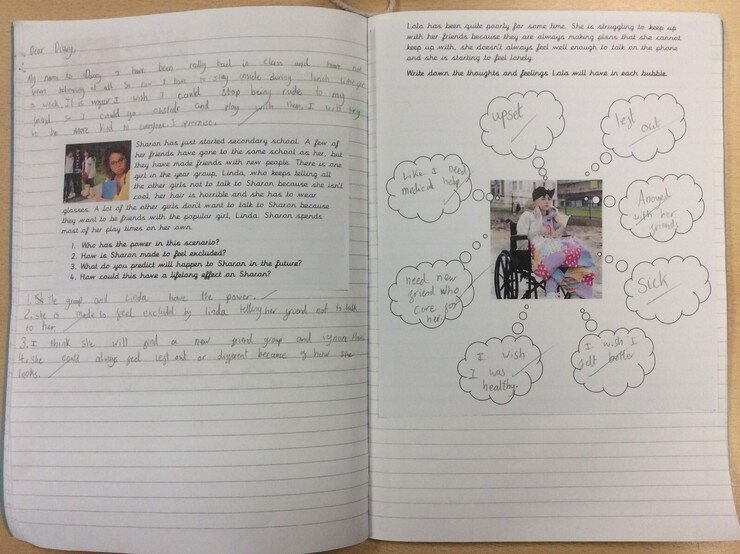 Dear Diary,
My name is I have been really bad in class and have not
been listening at all So now I have to stay inside during lunch
a week. It is I wish I could stop being rude to my
so I could go outside and play with them. I will try
to be more kind to everyone. I promise.
Sharon has just started secondary school. A few of
her friends have gone to the same school as her, but
they have made friends with new people. There is one
girl in the year group, Linda, who keeps telling all
the other girls not to talk to Sharon because she isn't
cool, her hair is horrible and she has to wear
glasses. A lot of the other girls don't want to talk to Sharon because
they want to be friends with the popular girl, Linda. Sharon spends
most of her play times on her own.
1. Who has the power in this scenario?
2. How is Sharon made to feel excluded?
3. What do you predict will happen to Sharon in the future?
4. How could this have a lifelong effect on Sharon?
1. The group and Linda have the power.
2. she is made to feel excluded by linda telling her not to talk
to her.
3. I think she will find a new friend group and ignore them
4. she could always feel left out or different because of how she
looks.
Lola has been quite poorly for some time. She is struggling to keep up
with her friends because they are always making plans that she cannot
keep up with, she doesn't always feel well enough to talk on the phone
and she is starting to feel lonely.
Write down the thoughts and feelings Lola will have in each bubble.
upset
left
out
Like I need
medical help
Anoyed
with her
friends
need new
friend who
care for
her
sick
I wish
I was
healthy.
I wish I
felt better